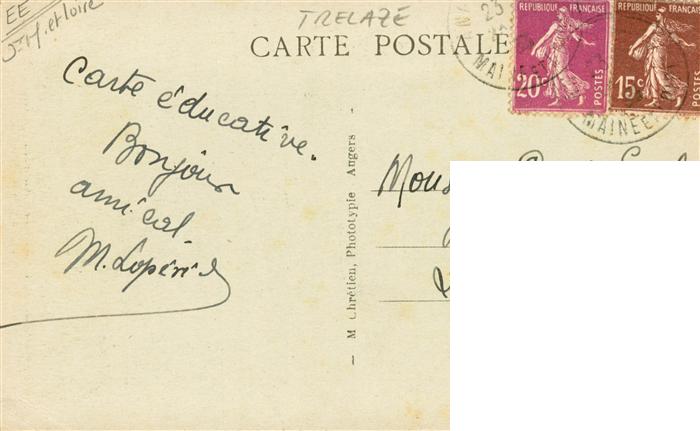 EE
TRELAZE
CARTE POSTALE
RÉPUBLIQUE FRANÇAISE
20c
POSTES
RÉPUBLIQUE FRANÇAISE
15c
POSTES
23
MAINE ET
MAINE ET
Carte éducative.
Bonjour
amical
— M Chrétien, Phototypie Angers —